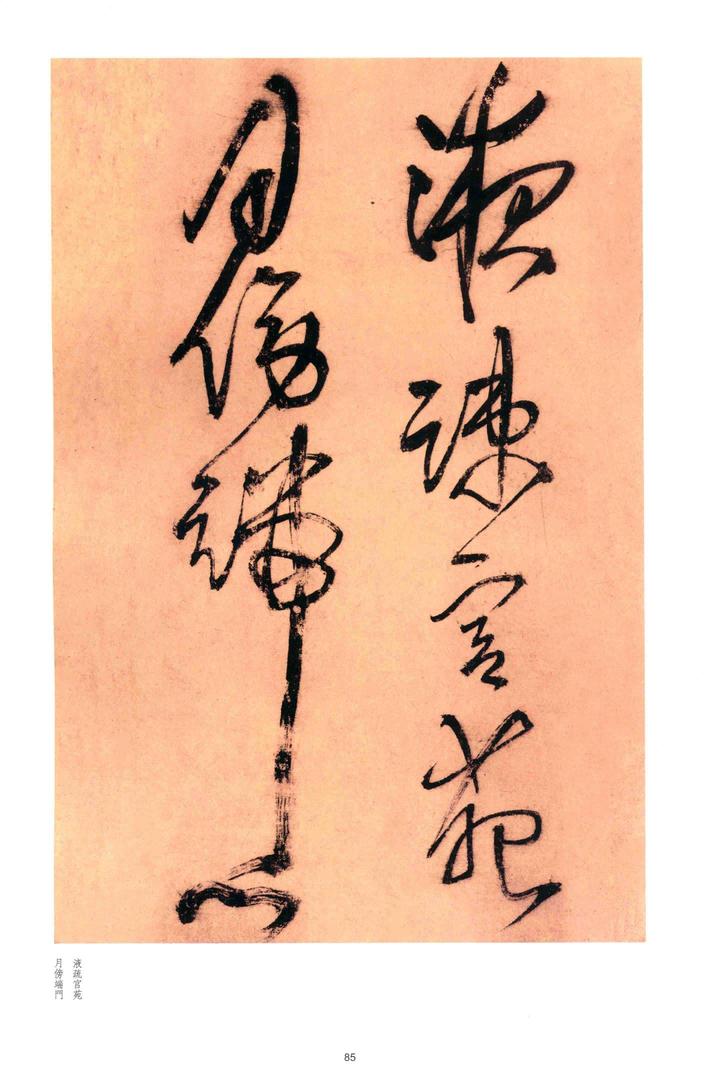 液疏宫苑
月傍端門
液疏宫苑
月傍端門
85